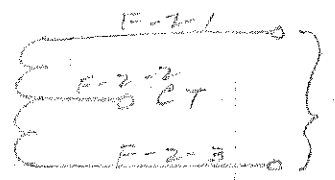 F-2-1
F-2-2
CT
F-2-3